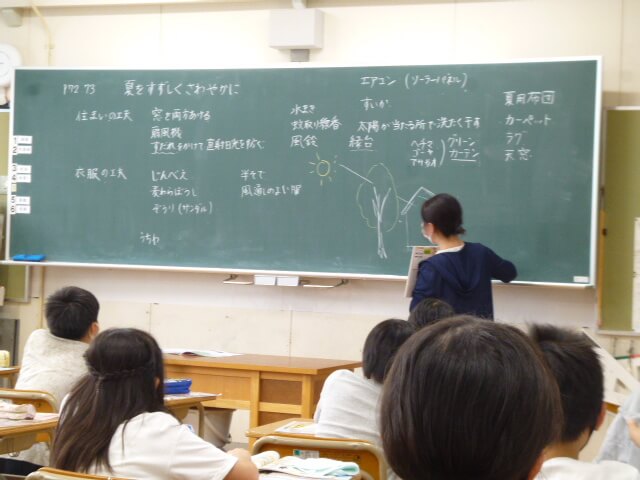 P72 73 夏をすずしくさわやかに
住まいの工夫
窓を両方あける
扇風機
すだれをかけて直射日光を防ぐ
水まき
蚊取り線香
風鈴
エアコン (ソーラーパネル)
すいか
太陽が当たる所で洗たく干す
ヘチマ
ゴーヤ
アサガオ
グリーン
カーテン
夏用布団
カーペット
ラグ
天窓
衣服の工夫
じんべえ
麦わらぼうし
ぞうり (サンダル)
半そで
風通しのよい服
うちわ
1
2
3
4
5
6